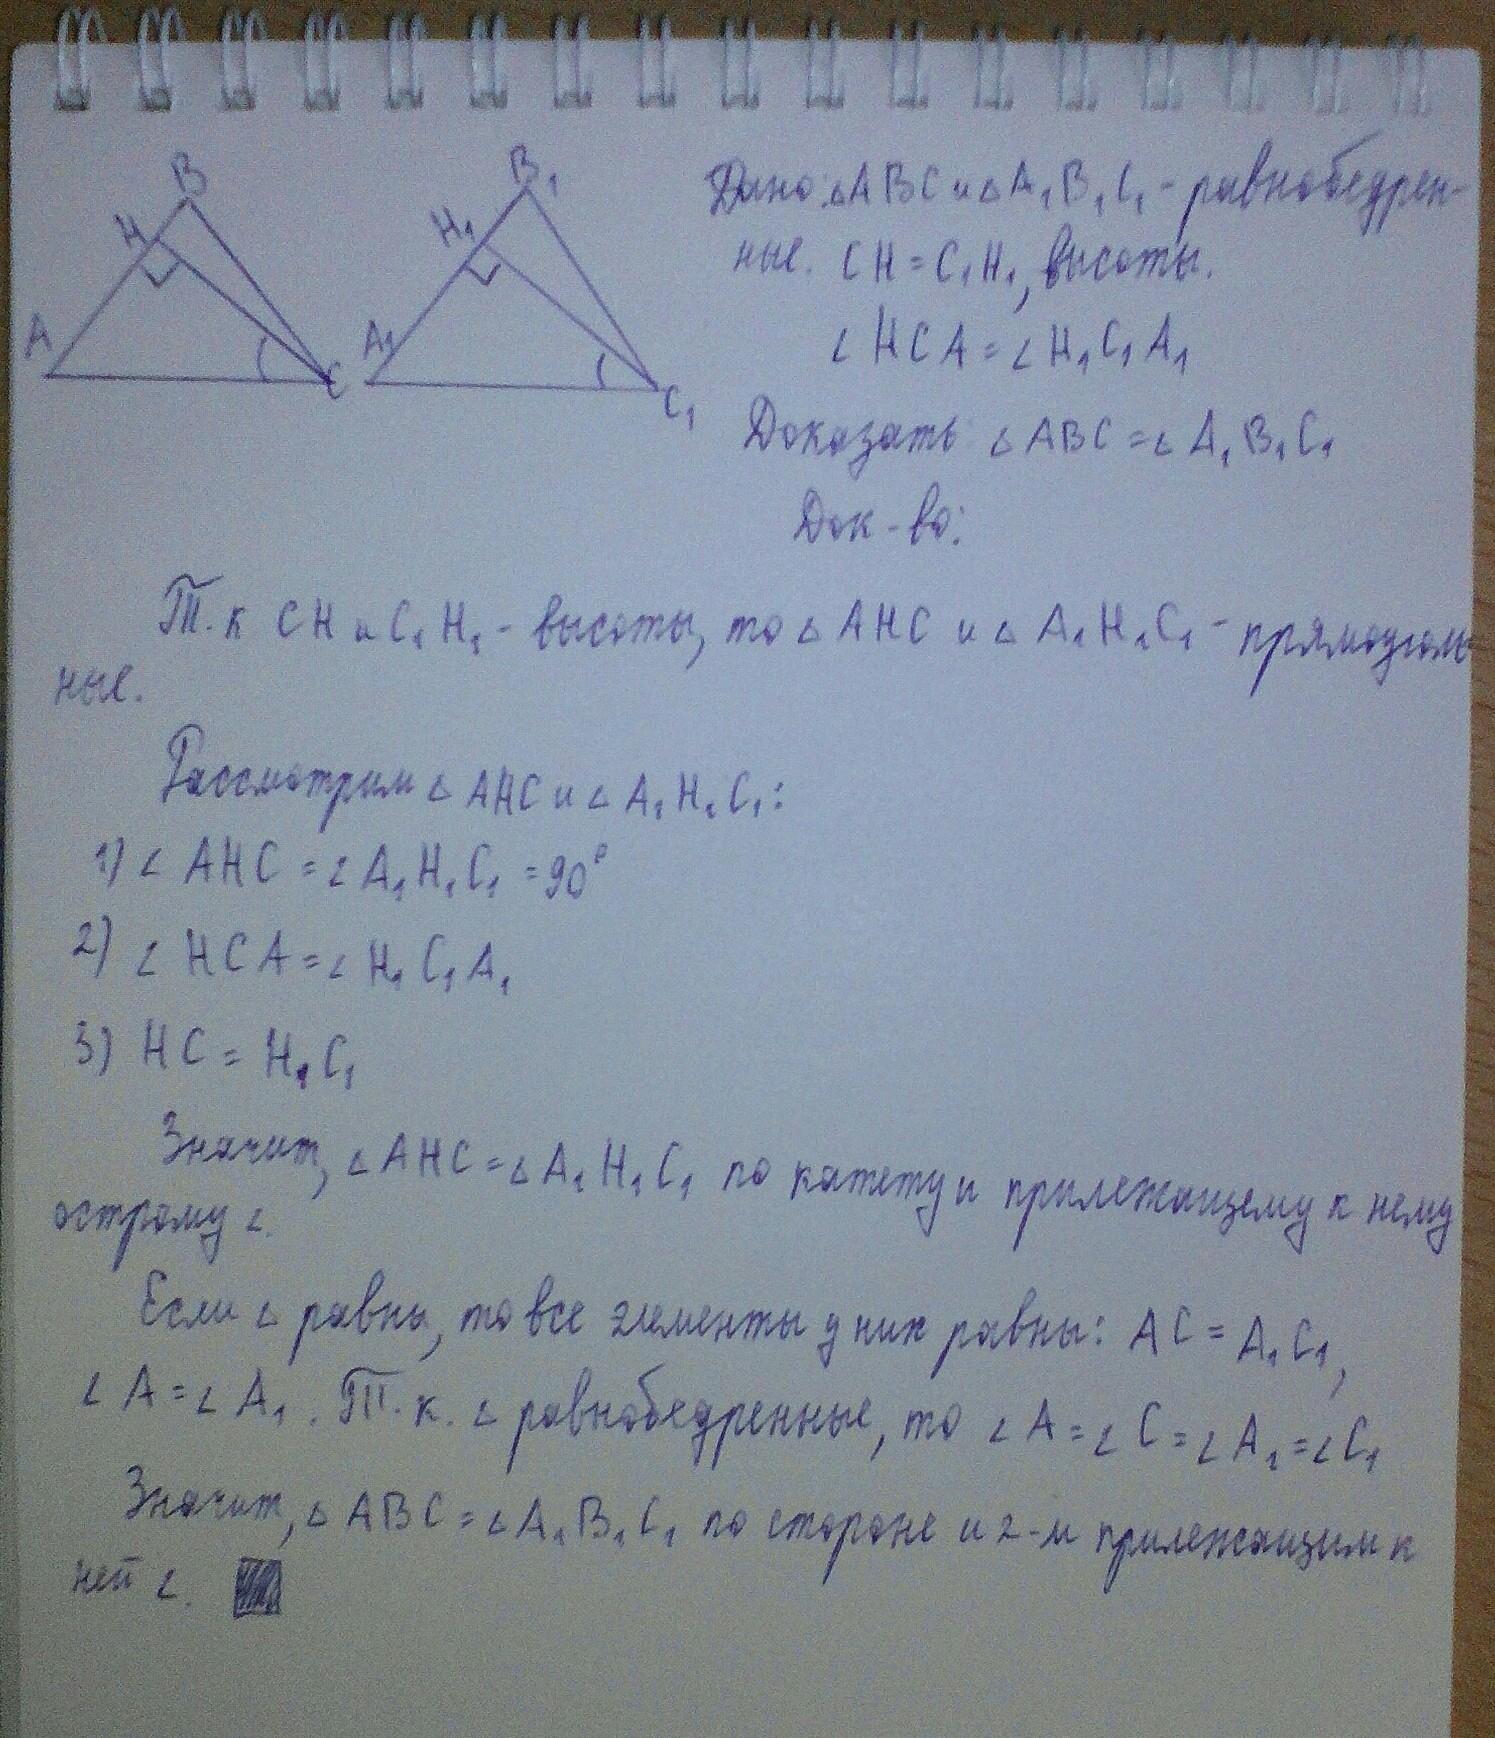 B
H
A
C
B₁
H₁
A₁
C₁
Дано: △ABC и △A₁B₁C₁ - равнобедрен-
ные. CH = C₁H₁, высоты.
∠HCA = ∠H₁C₁A₁
Доказать △ABC = △A₁B₁C₁
Док-во:
Т.к CH и C₁H₁ - высоты, то △AHC и △A₁H₁C₁ - прямоуголь
ные.
Рассмотрим △AHC и △A₁H₁C₁:
1) ∠AHC = ∠A₁H₁C₁ = 90°
2) ∠HCA = ∠H₁C₁A₁
3) HC = H₁C₁
Значит, △AHC = △A₁H₁C₁ по катету и прилежащему к нему
острому ∠.
Если △ равны, то все элементы у них равны: AC = A₁C₁,
∠A = ∠A₁. Т.к. △ равнобедренные, то ∠A = ∠C = ∠A₁ = ∠C₁
Значит, △ABC = △A₁B₁C₁ по стороне и 2-м прилежащим к
ней ∠.